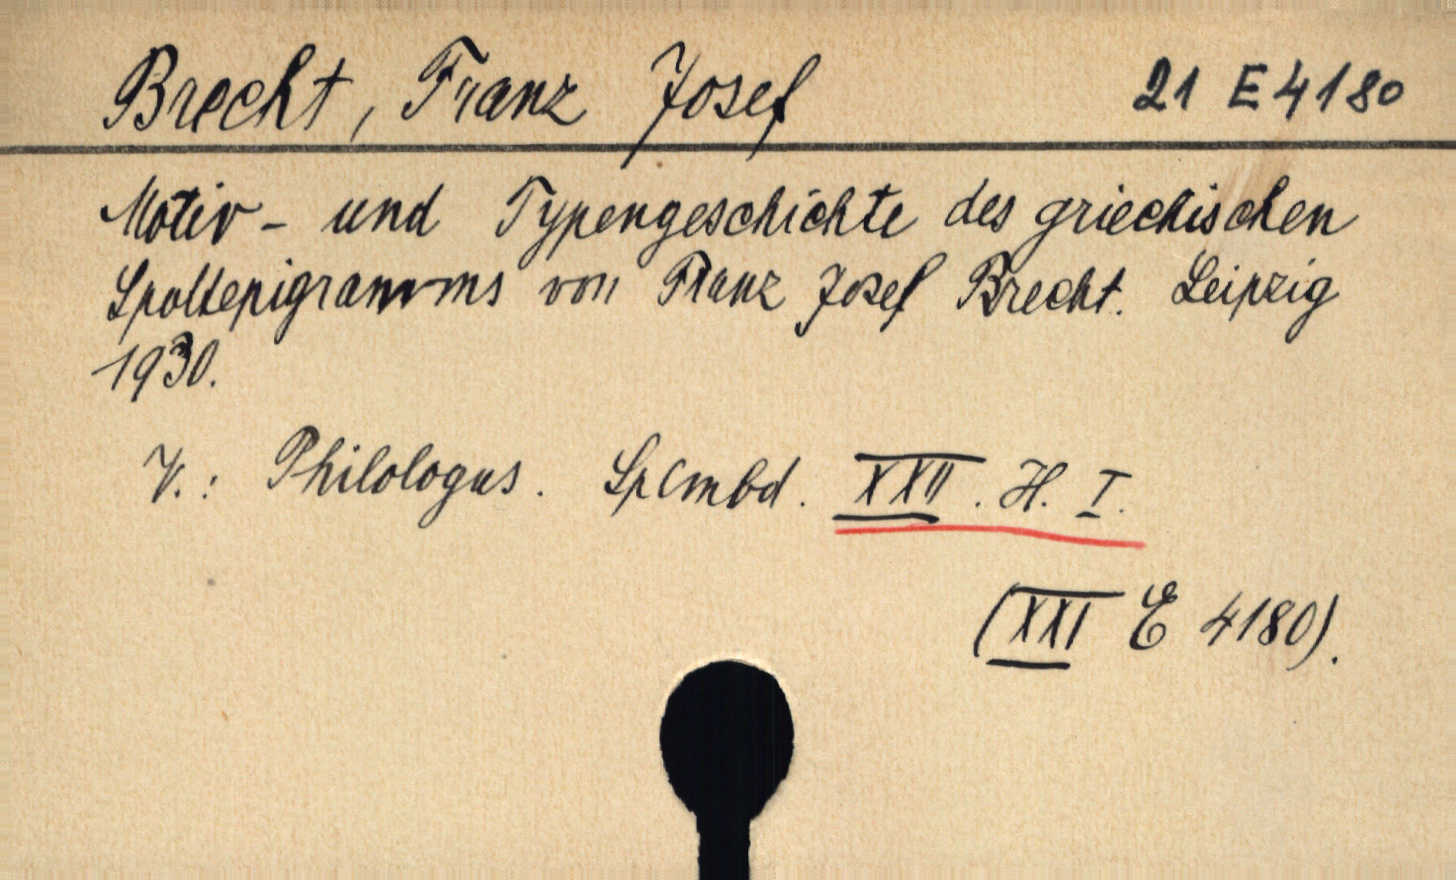 Brecht, Franz Josef 21 E 4180
Motiv- und Typengeschichte des griechischen
Spottepigramms von Franz Josef Brecht. Leipzig
1930.
V.: Philologus. Splmbd. XXII. H. I.
(XXI E 4180).